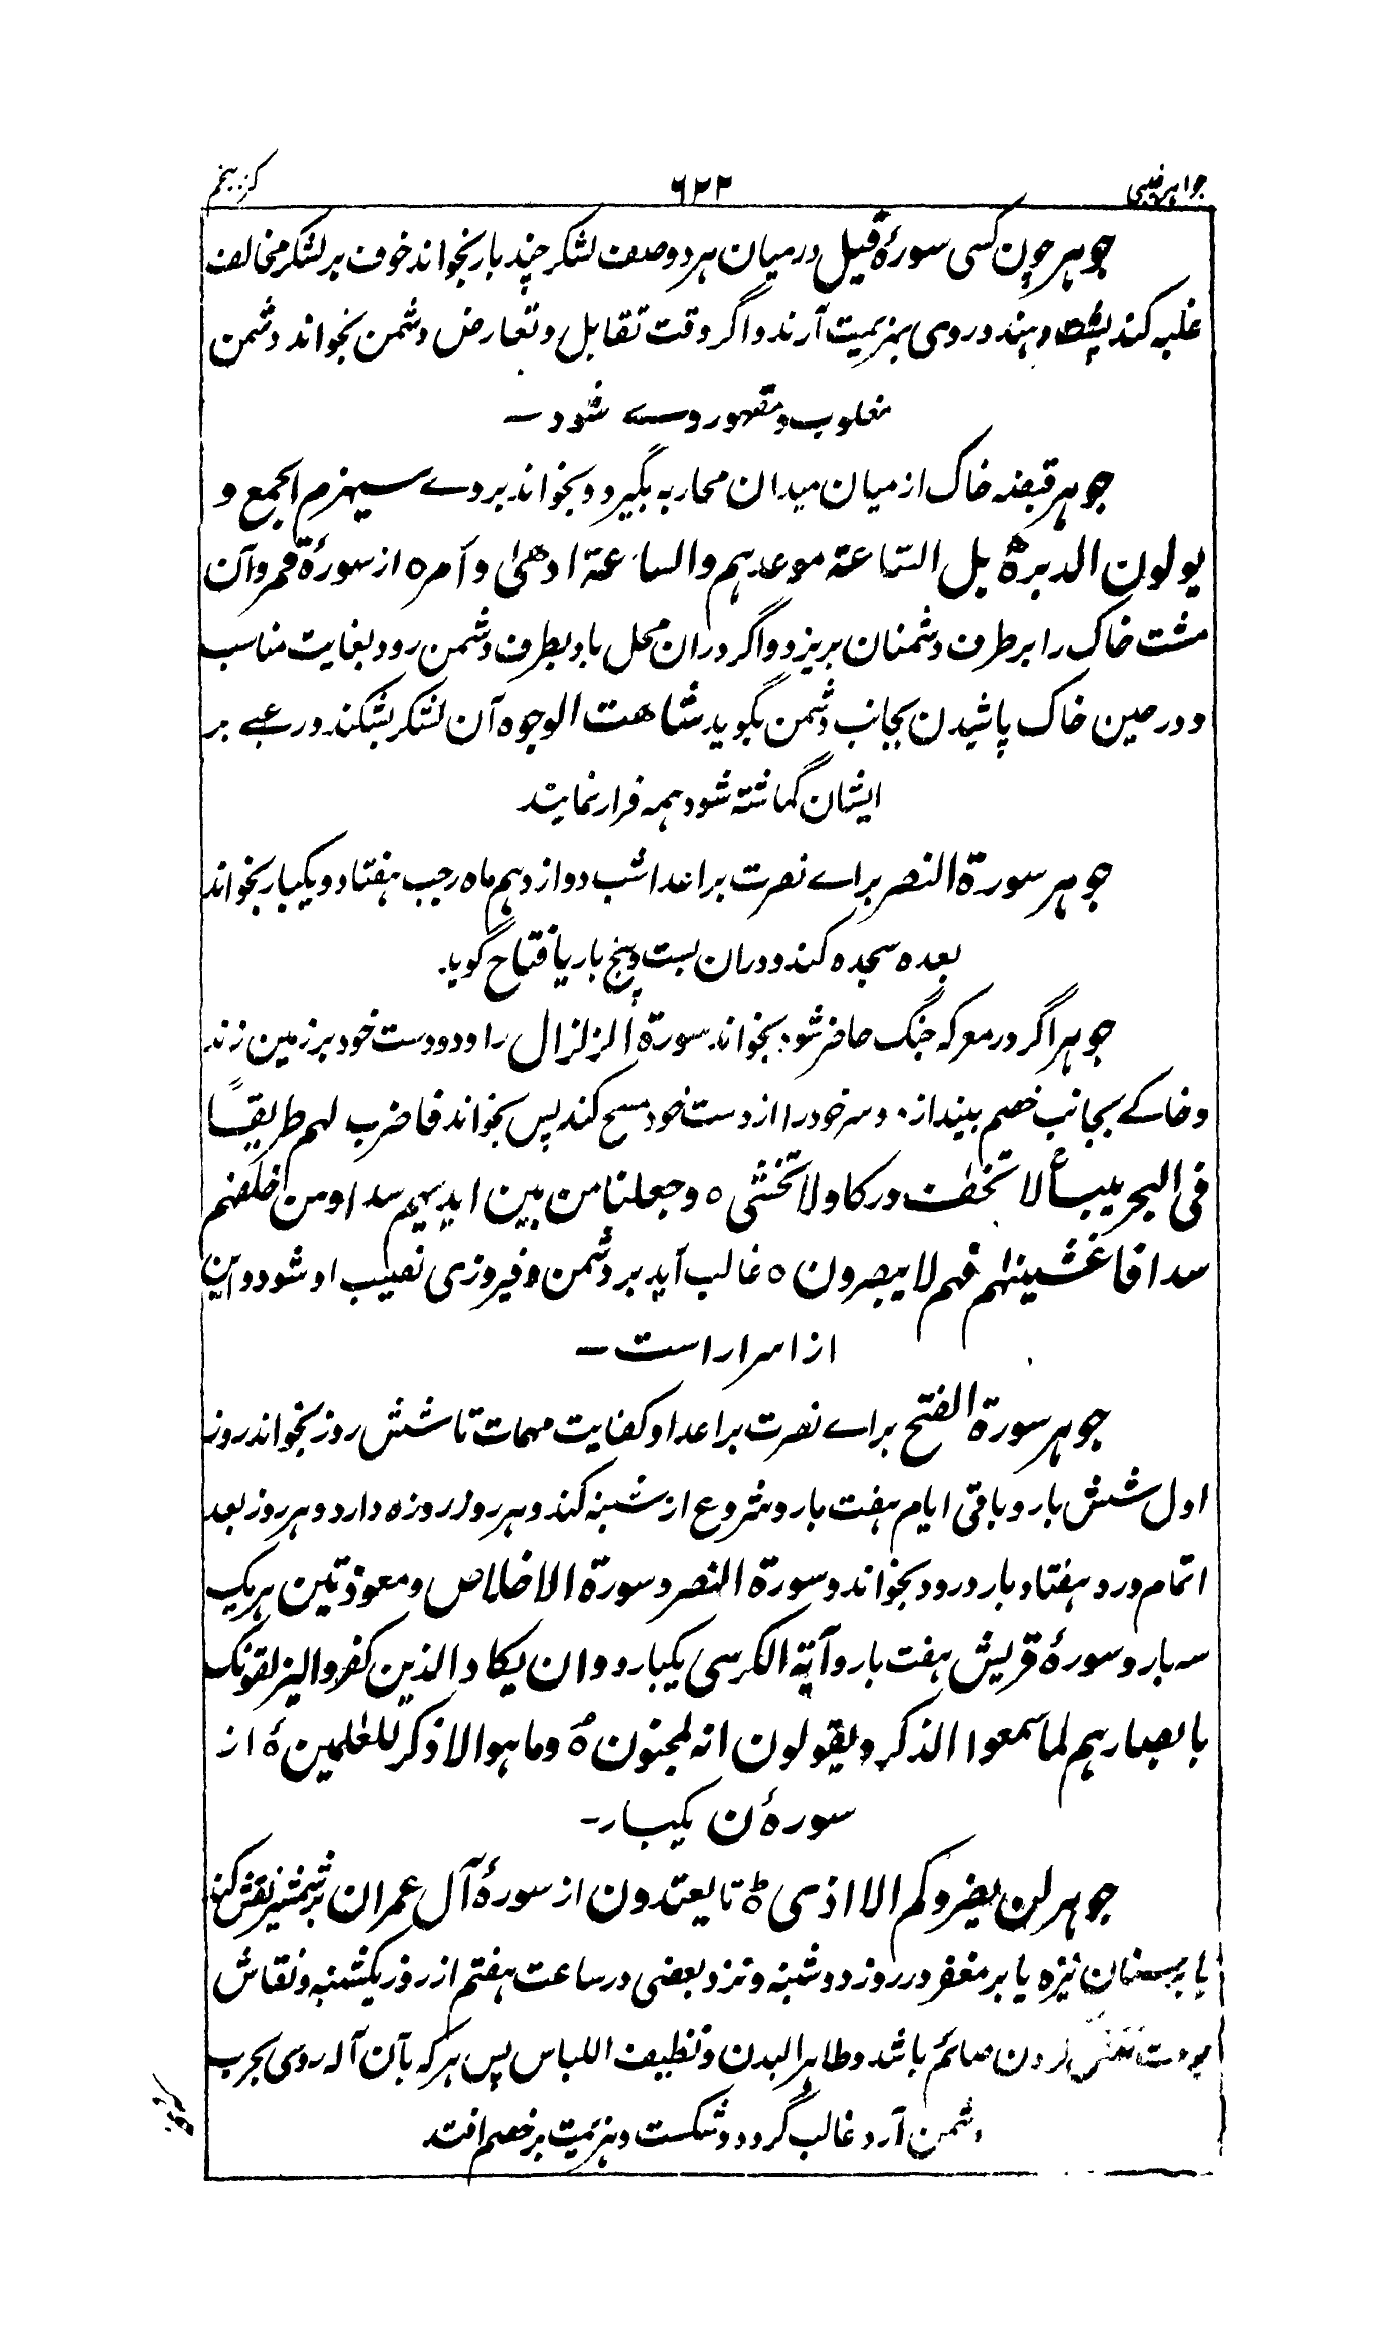 جواهر غیبی ۶۲۲ کنز پنجم
جوهر چون کسی سورۀ فیل درمیان هر دو صف لشکر چند بار بخواند خوف بر لشکر مخالف
غلبه کند پشت دهند و روی بهزیمت آرند و اگر وقت تقابل و تعارض دشمن بخواند دشمن
مغلوب و مقهور وے شود –
جوهر قبضه خاک از میان میدان محاربه بگیرد و بخواند بر وے سیهزم الجمع و
یولون الدبر ۵ بل الساعة موعدهم والساعة ادهیٰ و امر ۵ از سورۀ قمر و آن
مشت خاک را بر طرف دشمنان بریزد و اگر دران محل باد بطرف دشمن رود بغایت مناسب
و در حین خاک پاشیدن بجانب دشمن بگوید شاهت الوجوه آن لشکر بشکند و رعبے بر
ایشان گماشته شود همه فرار نمایند
جوهر سورة النصر براے نصرت بر اعدا شب دوازدهم ماه رجب هفتاد و یکبار بخواند
بعده سجده کند و دران بست و پنج بار یا فتاح گوید
جوهر اگر در معرکه جنگ حاضر شود بخواند سورة الزلزال را و دو دست خود بر زمین زند
و خاکے بجانب خصم بیندازد و سر خود را از دست خود مسح کند پس بخواند فاضرب لهم طریقًا
فی البحر یبسأ لا تخف درکا ولا تخشی ۵ وجعلنا من بین ایدیهم سدا ومن خلفهم
سدا فاغشینٰهم فهم لا یبصرون ۵ غالب آید بر دشمن و فیروزی نصیب او شود و این
از اسرار است –
جوهر سورة الفتح براے نصرت بر اعدا و کفایت مهمات تا شش روز بخواند روز
اول شش بار و باقی ایام هفت بار و شروع از شنبه کند و هر روز روزه دارد و هر روز بعد
اتمام ورد هفتاد بار درود بخواند و سورة النصر و سورة الاخلاص و معوذتین هریک
سه بار و سورۀ قریش هفت بار و آیة الکرسی یکبار و وان یکاد الذین کفروا لیزلقونک
بابصارهم لما سمعوا الذکر ویقولون انه لمجنون ۵ وما هو الا ذکر للعٰلمین ۵ از
سورۀ ن یکبار –
جوهر لن یضروکم الا اذی ۵ تا یعتدون از سورۀ آل عمران بر شمشیر نقش کند
یا بر سنان نیزه یا بر مغفر در روز دوشنبه و نزد بعضی در ساعت هفتم از روز یکشنبه و نقاش
کردن صائم باشد و طاهر البدن و نظیف اللباس پس هرکه بآن آله روی بحرب
دشمن آرد غالب گردد و شکست و هزیمت بر خصم افتد